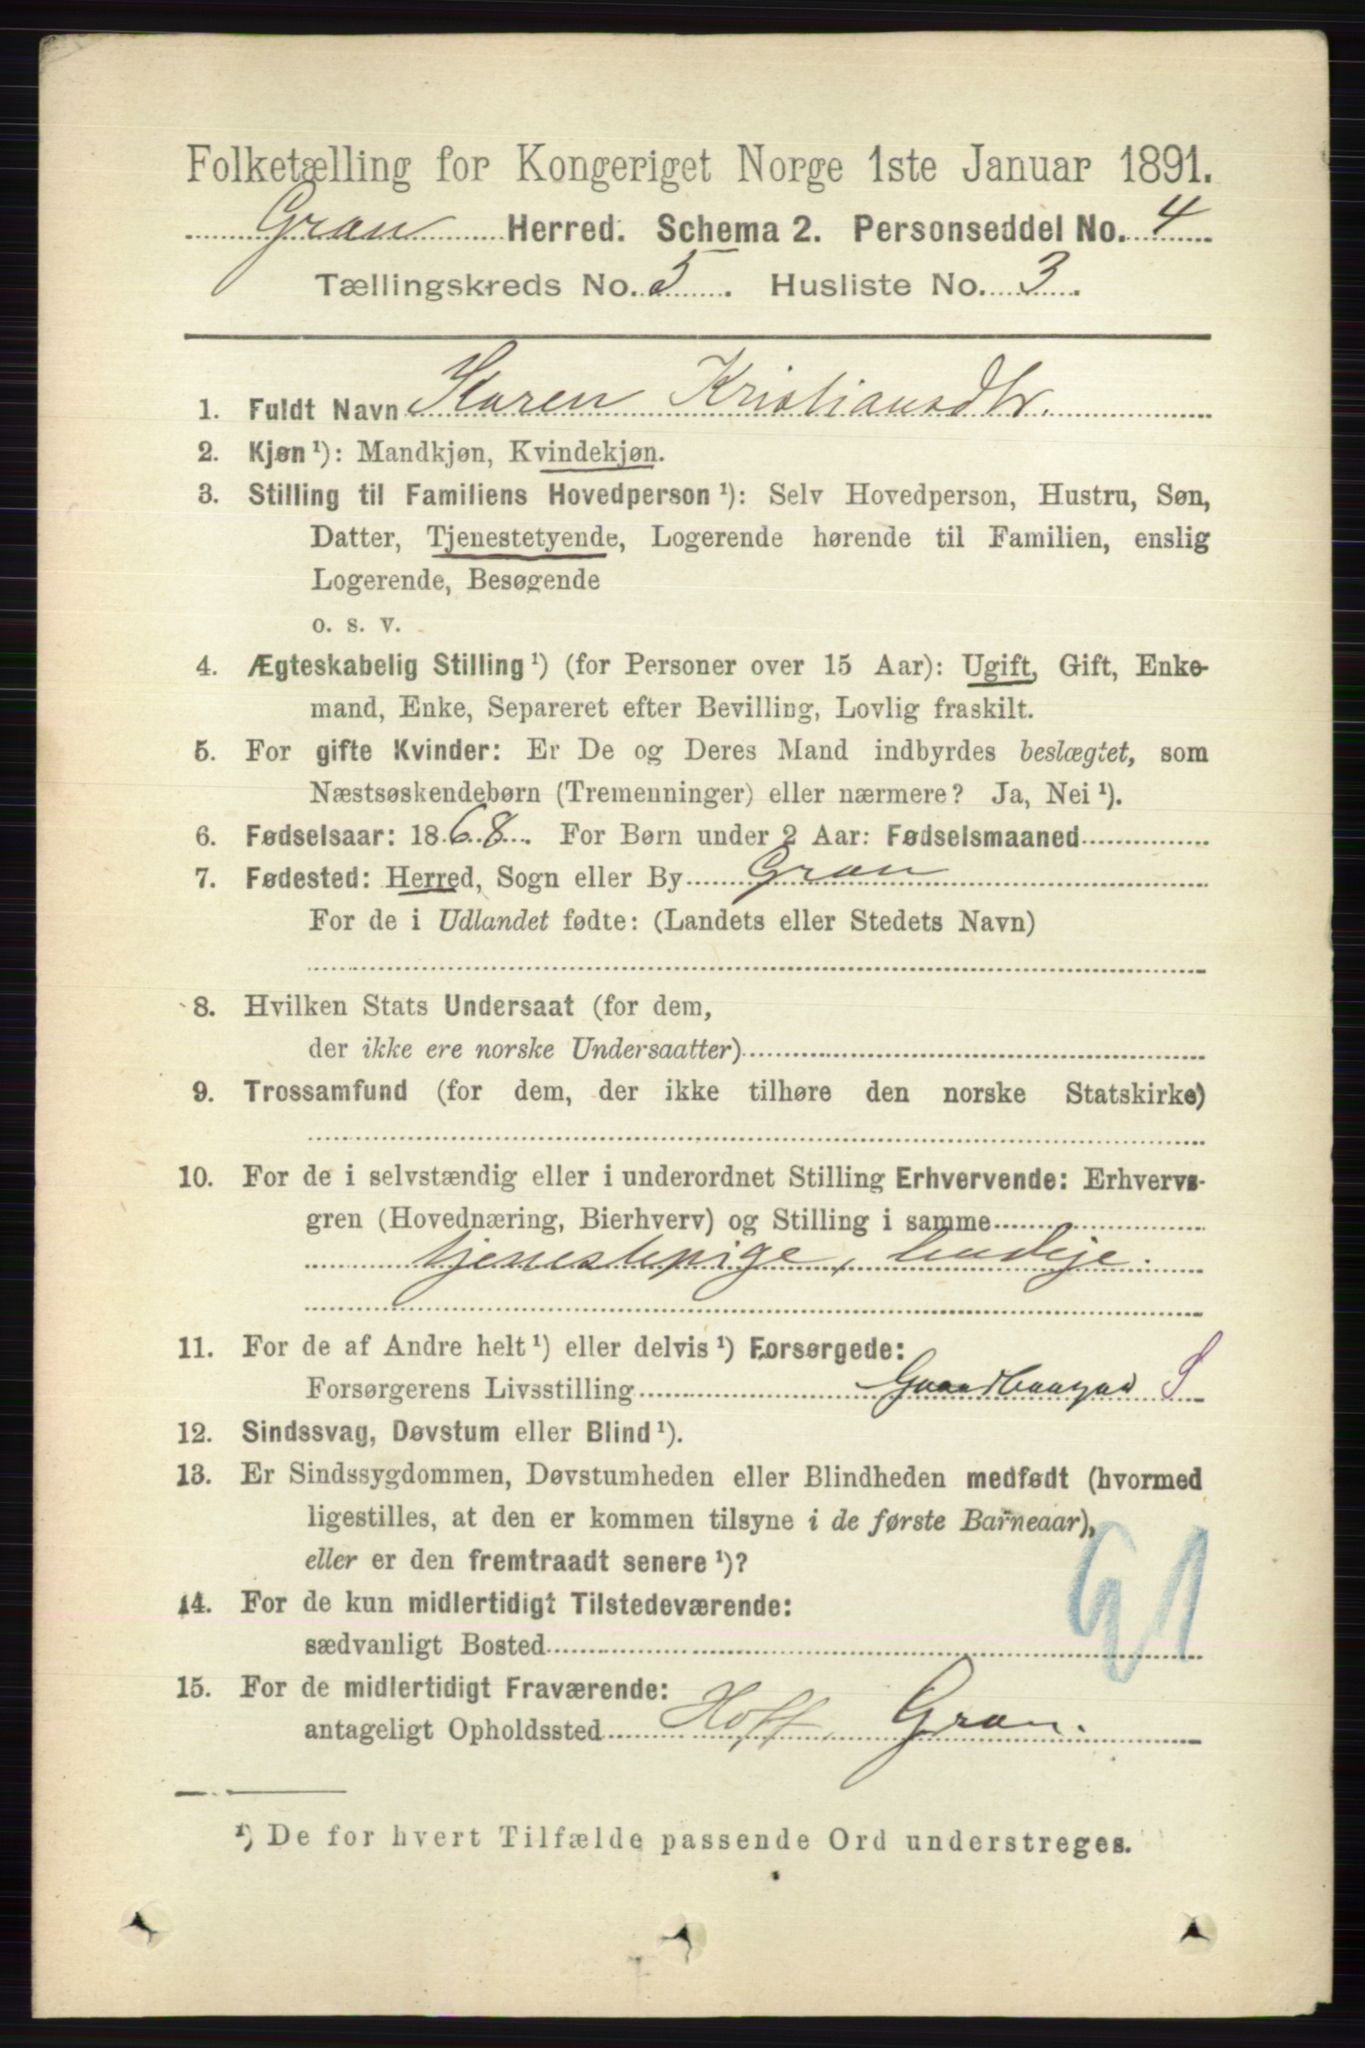 Folketælling for Kongeriget Norge 1ste Januar 1891.
Gran Herred. Schema 2. Personseddel No. 4
Tællingskreds No. 5. Husliste No. 3.
1. Fuldt Navn Karen Kristiansdtr.
2. Kjøn ¹): Mandkjøn, Kvindekjøn.
3. Stilling til Familiens Hovedperson ¹): Selv Hovedperson, Hustru, Søn,
Datter, Tjenestetyende, Logerende hørende til Familien, enslig
Logerende, Besøgende
o. s. v.
4. Ægteskabelig Stilling ¹) (for Personer over 15 Aar): Ugift, Gift, Enke-
mand, Enke, Separeret efter Bevilling, Lovlig fraskilt.
5. For gifte Kvinder: Er De og Deres Mand indbyrdes beslægtet, som
Næstsøskendebørn (Tremenninger) eller nærmere? Ja, Nei ¹).
6. Fødselsaar: 1868. For Børn under 2 Aar: Fødselsmaaned
7. Fødested: Herred, Sogn eller By Gran
For de i Udlandet fødte: (Landets eller Stedets Navn)
8. Hvilken Stats Undersaat (for dem,
der ikke ere norske Undersaatter)
9. Trossamfund (for dem, der ikke tilhøre den norske Statskirke)
10. For de i selvstændig eller i underordnet Stilling Erhvervende: Erhvervs-
gren (Hovednæring, Bierhverv) og Stilling i samme
tjenestepige, budeje.
11. For de af Andre helt ¹) eller delvis ¹) Forsørgede:
Forsørgerens Livsstilling S
12. Sindssvag, Døvstum eller Blind ¹).
13. Er Sindssygdommen, Døvstumheden eller Blindheden medfødt (hvormed
ligestilles, at den er kommen tilsyne i de første Barneaar),
eller er den fremtraadt senere ¹)?
14. For de kun midlertidigt Tilstedeværende:
sædvanligt Bosted
91
15. For de midlertidigt Fraværende:
antageligt Opholdssted Hoff, Gran.
¹) De for hvert Tilfælde passende Ord understreges.